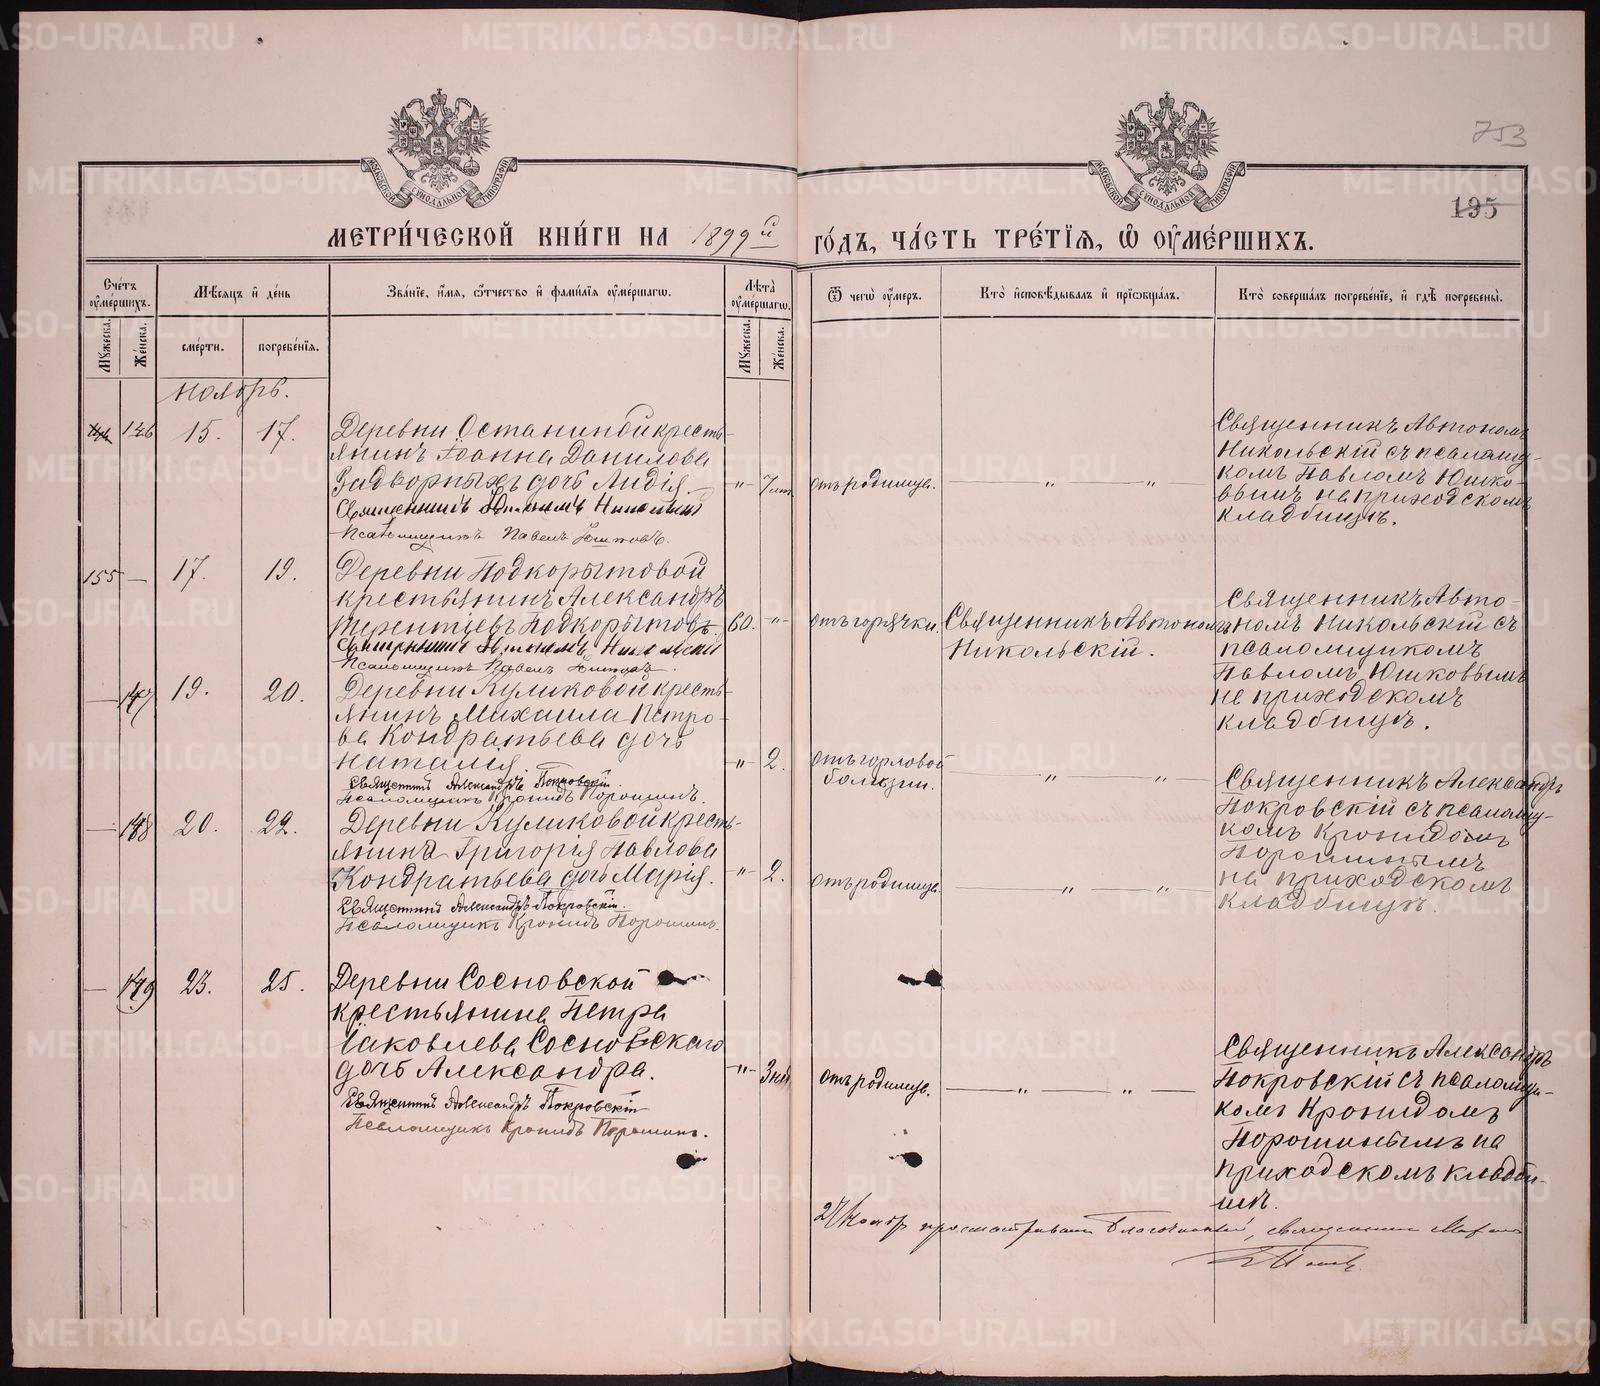 753
195
МОСКОВСКОЙ СѴНОДАЛЬНОЙ ТИПОГРАФІИ
МОСКОВСКОЙ СѴНОДАЛЬНОЙ ТИПОГРАФІИ
МЕТРИ́ЧЕСКОЙ КНИ́ГИ НА 1899й ГО́ДЪ, ЧА́СТЬ ТРЕ́ТІЯ, Ѡ ОУМЕ́РШИХЪ.
Сче́тъ оуме́ршихъ.
Мѣсяцъ и де́нь
Зва́ніе, и́мя, о́тчество и фами́лія оуме́ршагѡ.
Лѣта̀ оуме́ршагѡ.
Ѿ чегѡ̀ оу́меръ.
Кто̀ и҆сповѣ́дывалъ и҆ прїѡбща́лъ.
Кто̀ соверша́лъ погребе́ніе, и҆ гдѣ̀ погребены̀.
Мꙋ́жеска.
Же́нска.
сме́рти.
погребе́нія.
Мꙋ́жеска.
Же́нска.
Ноябрь.
146 15. 17.
Деревни Останиной кресть-
янина Іоанна Данилова
Задворныхъ дочь Лидія.
Священникъ Автономъ Никольскій
Псаломщикъ Павелъ Юшковъ.
-"- 7 отъ родимца. " "
Священникъ Автономъ
Никольскій съ псаломщи-
комъ Павломъ Юшко-
вымъ на приходскомъ
кладбищѣ.
155 — 17. 19.
Деревни Подкорытовой
крестьянинъ Александръ
Терентіевъ Подкорытовъ.
Священникъ Автономъ Никольскій
Псаломщикъ Павелъ Юшковъ.
60. -"- отъ горячки.
Священникъ Автономъ
Никольскій.
Священникъ Авто-
номъ Никольскій съ
псаломщикомъ
Павломъ Юшковымъ
на приходскомъ
кладбищѣ.
— 147 19. 20.
Деревни Куликовой кресть-
янина Михаила Петро-
ва Кондратьева дочь
Наталія.
Священникъ Александръ Покровскій.
Псаломщикъ Кронидъ Порошинъ.
-"- 2. отъ горловой
болѣзни.
" "
Священникъ Александръ
Покровскій съ псаломщи-
комъ Кронидомъ
Порошинымъ
на приходскомъ
кладбищѣ.
— 148 20. 22.
Деревни Куликовой кресть-
янина Григорія Павлова
Кондратьева дочь Марія.
Священникъ Александръ Покровскій.
Псаломщикъ Кронидъ Порошинъ.
-"- 2. отъ родимца. " "
— 149 23. 25.
Деревни Сосновской
крестьянина Петра
Іаковлева Сосновскаго
дочь Александра.
Священникъ Александръ Покровскій
Псаломщикъ Кронидъ Порошинъ.
-"- 3 отъ родимца. " "
Священникъ Александръ
Покровскій съ псаломщи-
комъ Кронидомъ
Порошинымъ на
приходскомъ кладби-
щѣ.
просматривалъ Благочинный, священникъ
METRIKI.GASO-URAL.RU